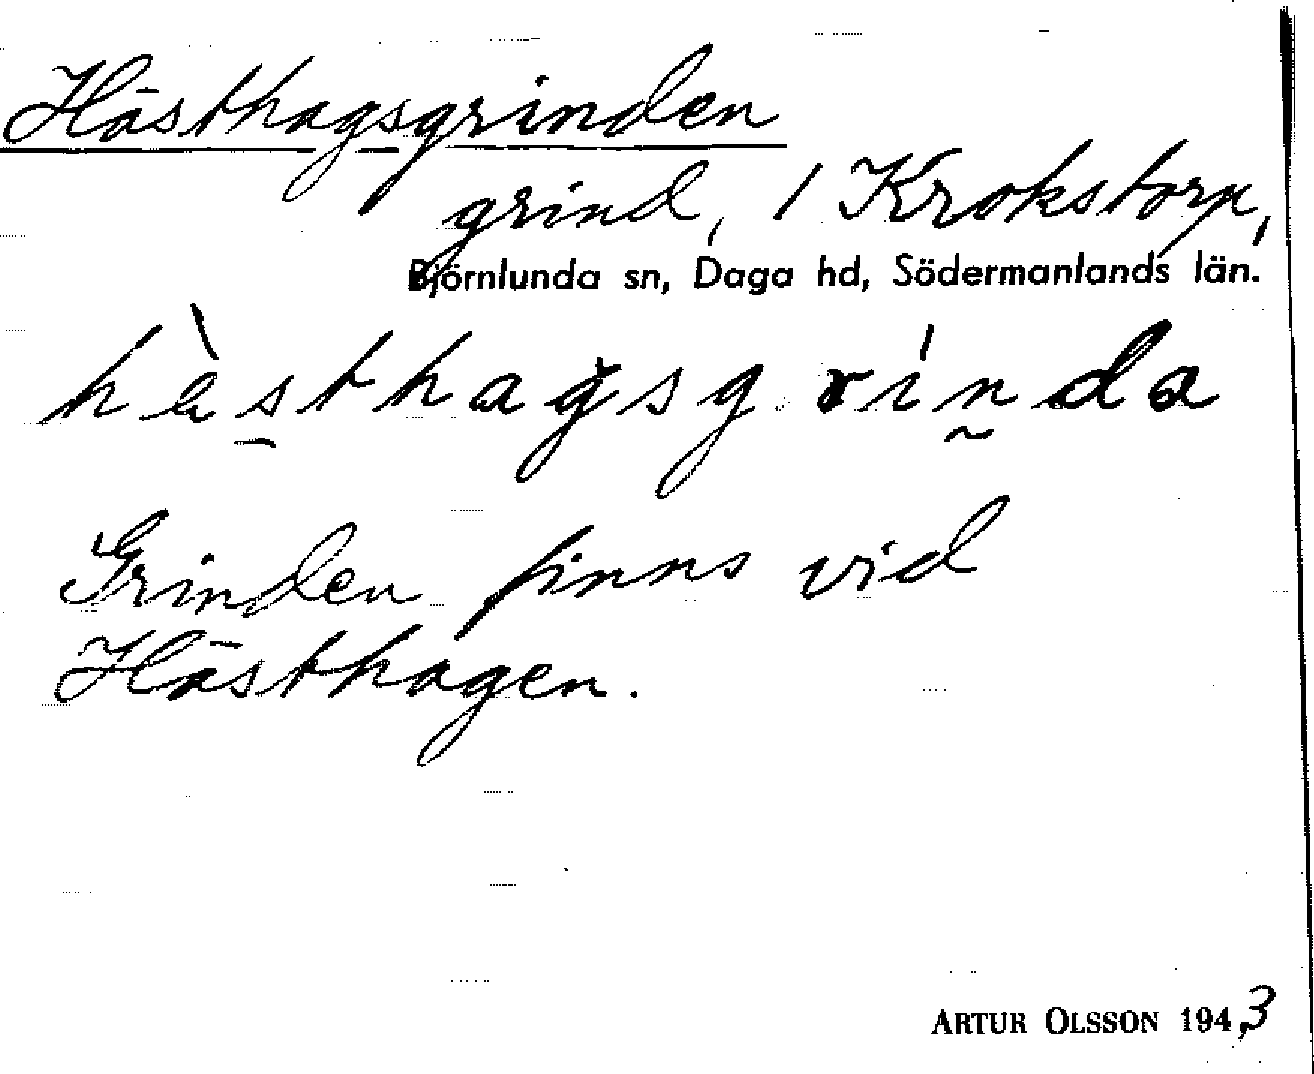 Hästhagsgrinden
grind, 1 Krokstorp,
Björnlunda sn, Daga hd, Södermanlands län.
hὲsthagsgrinda
Grinden finns vid
Hästhagen.
ARTUR OLSSON 1943